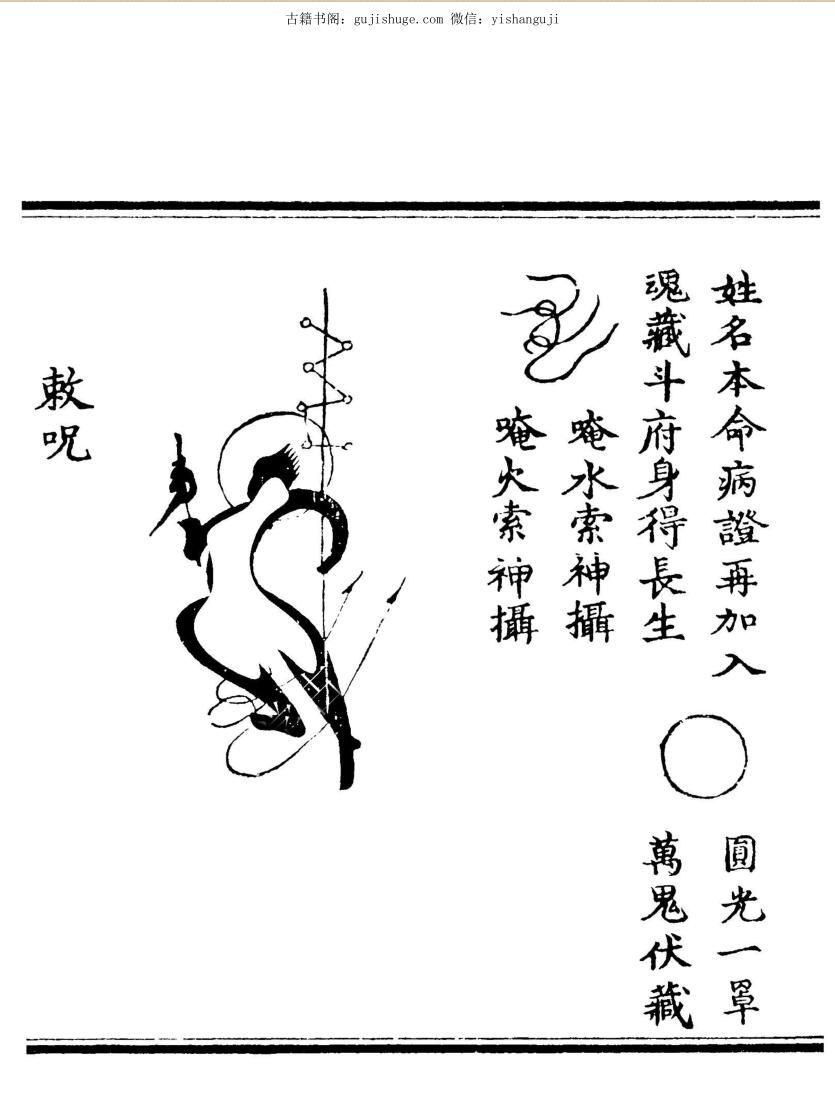 古籍书阁：gujishuge.com 微信：yishanguji
姓名本命病證再加入
圓光一罩
魂藏斗府身得長生
萬鬼伏藏
唵水索神攝
唵火索神攝
敕呪